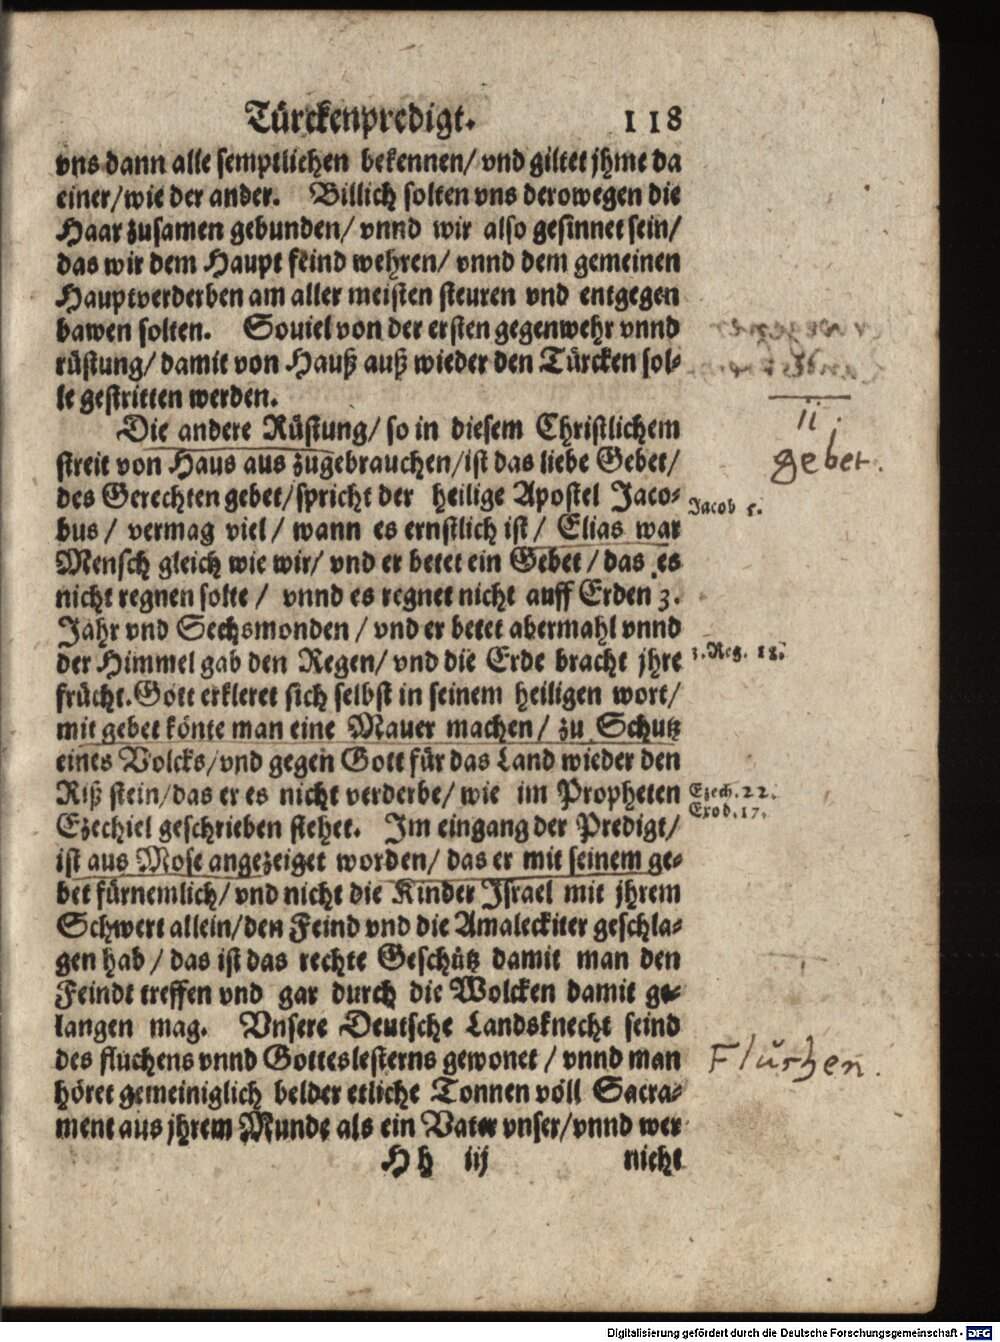 Türckenpredigt. 118
vns dann alle semptlichen bekennen/ vnd giltet jhme da
einer/ wie der ander. Billich solten vns derowegen die
Haar zusamen gebunden/ vnnd wir also gesinnet sein/
das wir dem Haupt feind wehren/ vnnd dem gemeinen
Hauptverderben am aller meisten steuren vnd entgegen
bawen solten. Souiel von der ersten gegenwehr vnnd
rüstung/ damit von Hauß auß wieder den Türcken sol-
le gestritten werden.
ii.
Die andere Rüstung/ so in diesem Christlichem
gebet.
streit von Haus aus zugebrauchen/ ist das liebe Gebet/
des Gerechten gebet/ spricht der heilige Apostel Jaco-
Jacob 5.
bus/ vermag viel/ wann es ernstlich ist/ Elias war
Mensch gleich wie wir/ vnd er betet ein Gebet/ das es
nicht regnen solte/ vnnd es regnet nicht auff Erden 3.
Jahr vnd Sechsmonden/ vnd er betet abermahl vnnd
der Himmel gab den Regen/ vnd die Erde bracht jhre
3. Reg. 18.
frücht. Gott erkleret sich selbst in seinem heiligen wort/
mit gebet könte man eine Mauer machen/ zu Schutz
eines Volcks/ vnd gegen Gott für das Land wieder den
Riß stein/ das er es nicht verderbe/ wie im Propheten
Ezech. 22.
Exod. 17.
Ezechiel geschrieben stehet. Im eingang der Predigt/
ist aus Mose angezeiget worden/ das er mit seinem ge-
bet fürnemlich/ vnd nicht die Kinder Israel mit jhrem
Schwert allein/ den Feind vnd die Amaleckiter geschla-
gen hab/ das ist das rechte Geschütz damit man den
Feindt treffen vnd gar durch die Wolcken damit ge-
langen mag. Vnsere Deutsche Landsknecht seind
des fluchens vnnd Gotteslesterns gewonet/ vnnd man
Fluchen.
höret gemeiniglich belder etliche Tonnen voll Sacra-
ment aus jhrem Munde als ein Vater vnser/ vnnd wer
Hh iij nicht
Digitalisierung gefördert durch die Deutsche Forschungsgemeinschaft - DFG